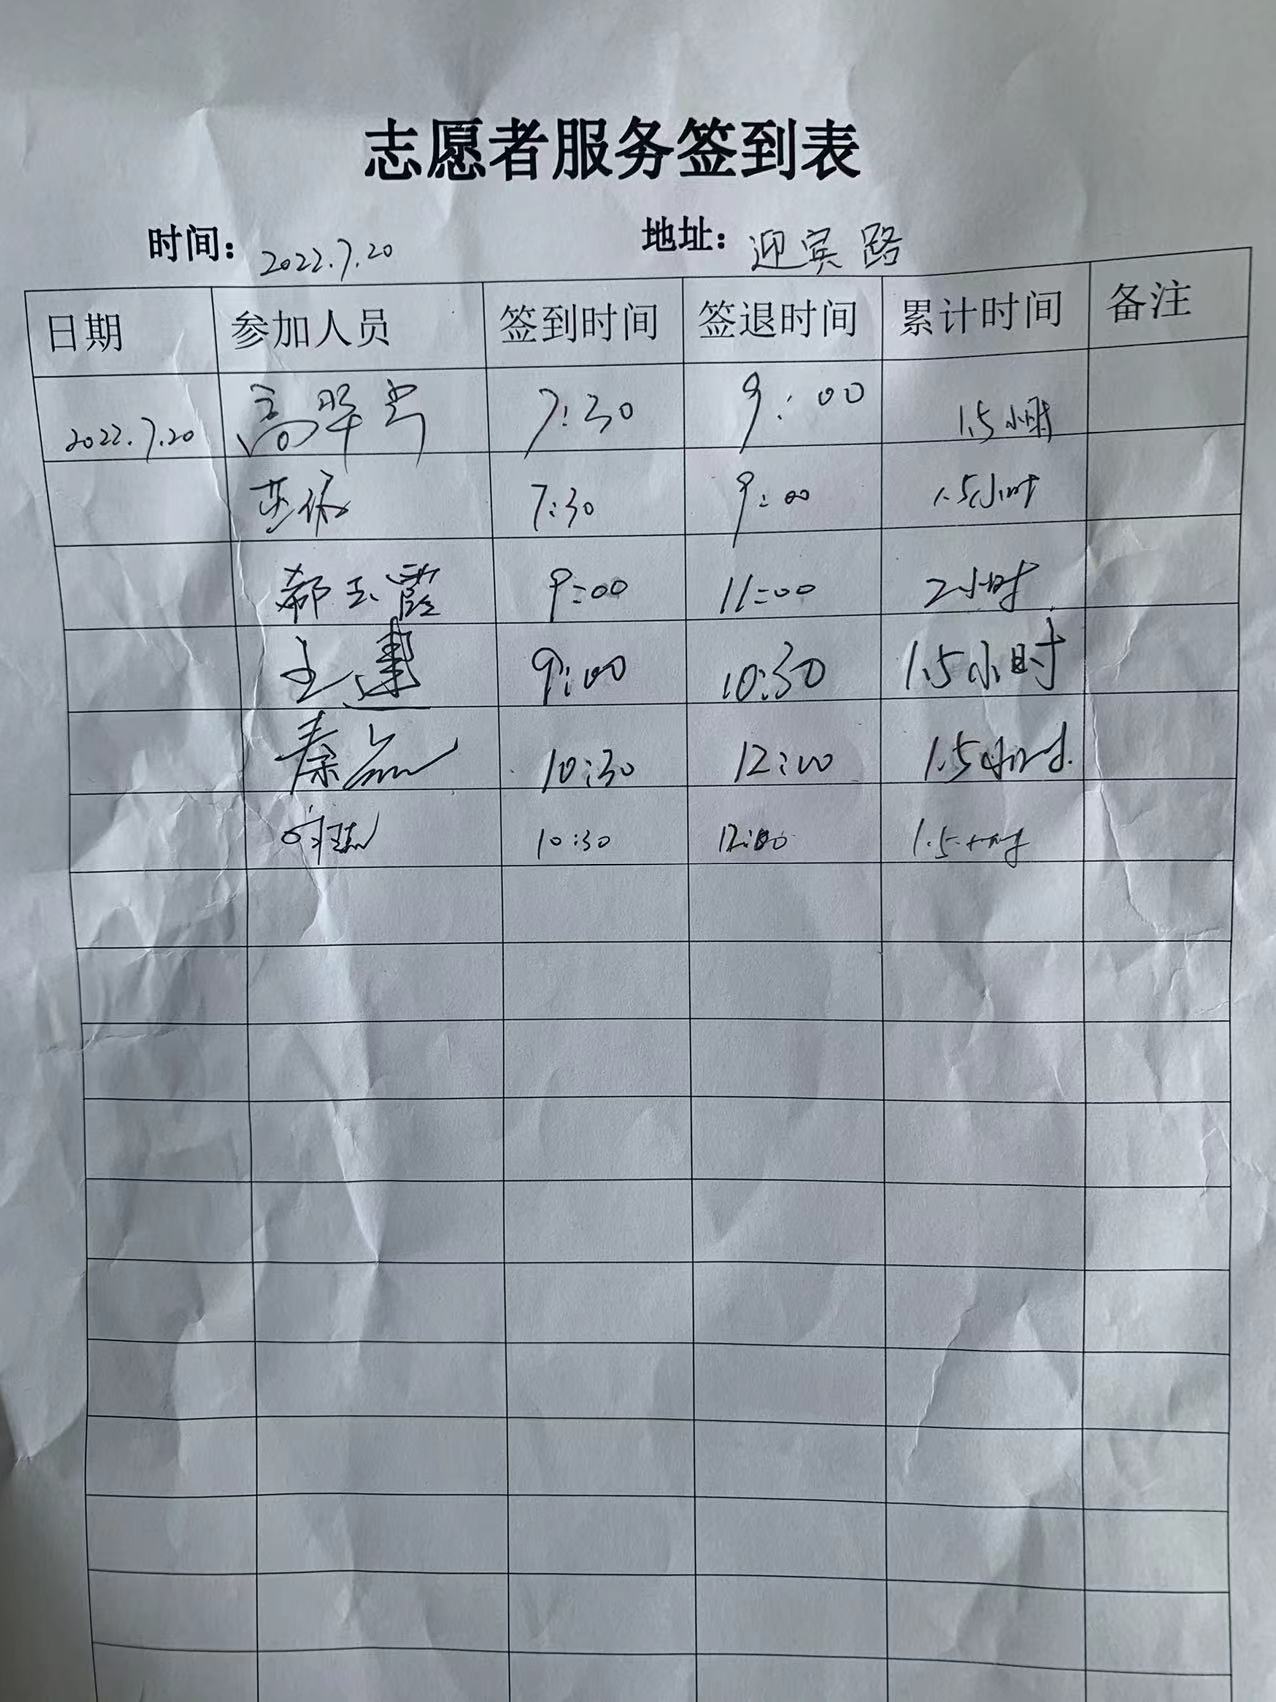 志愿者服务签到表
时间：2022.7.20 地址：迎宾路
日期 参加人员 签到时间 签退时间 累计时间 备注
2022.7.20 高翠 7:30 9:00 1.5小时
7:30 9:00 1.5小时
郝玉霞 9:00 11:00 2小时
王建 9:00 10:30 1.5小时
秦 10:30 12:00 1.5小时
10:30 12:00 1.5小时